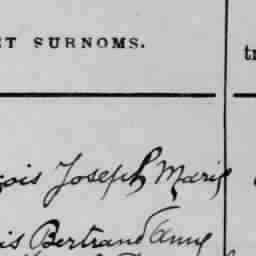 ET SURNOMS.
tr
çois Joseph Marie
is Bertrand Anne